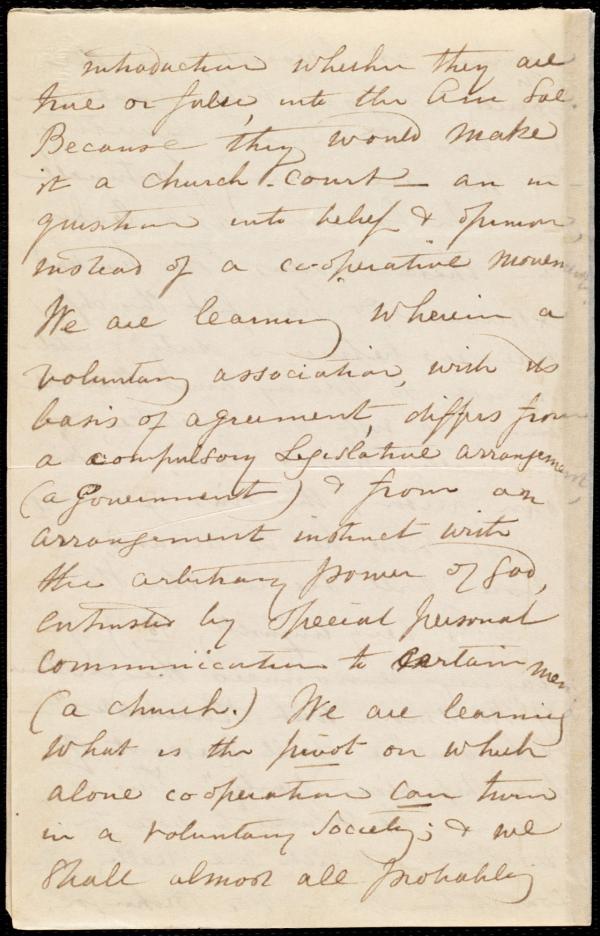 introduction whether they are
true or false, into the Am Soc.
Because they would make
it a church-court — an in-
quisition into belief & opinion,
instead of a co-operative movement.
We are learning wherein a
voluntary association, with its
basis of agreement, differs from
a compulsory Legislative arrangement,
(a Government) & from an
arrangement instinct with
the arbitrary power of God,
entrusted by special personal
communication to certain men
(a church.) We are learning
what is the pivot on which
alone co-operation can turn
in a voluntary Society; & we
shall almost all probably